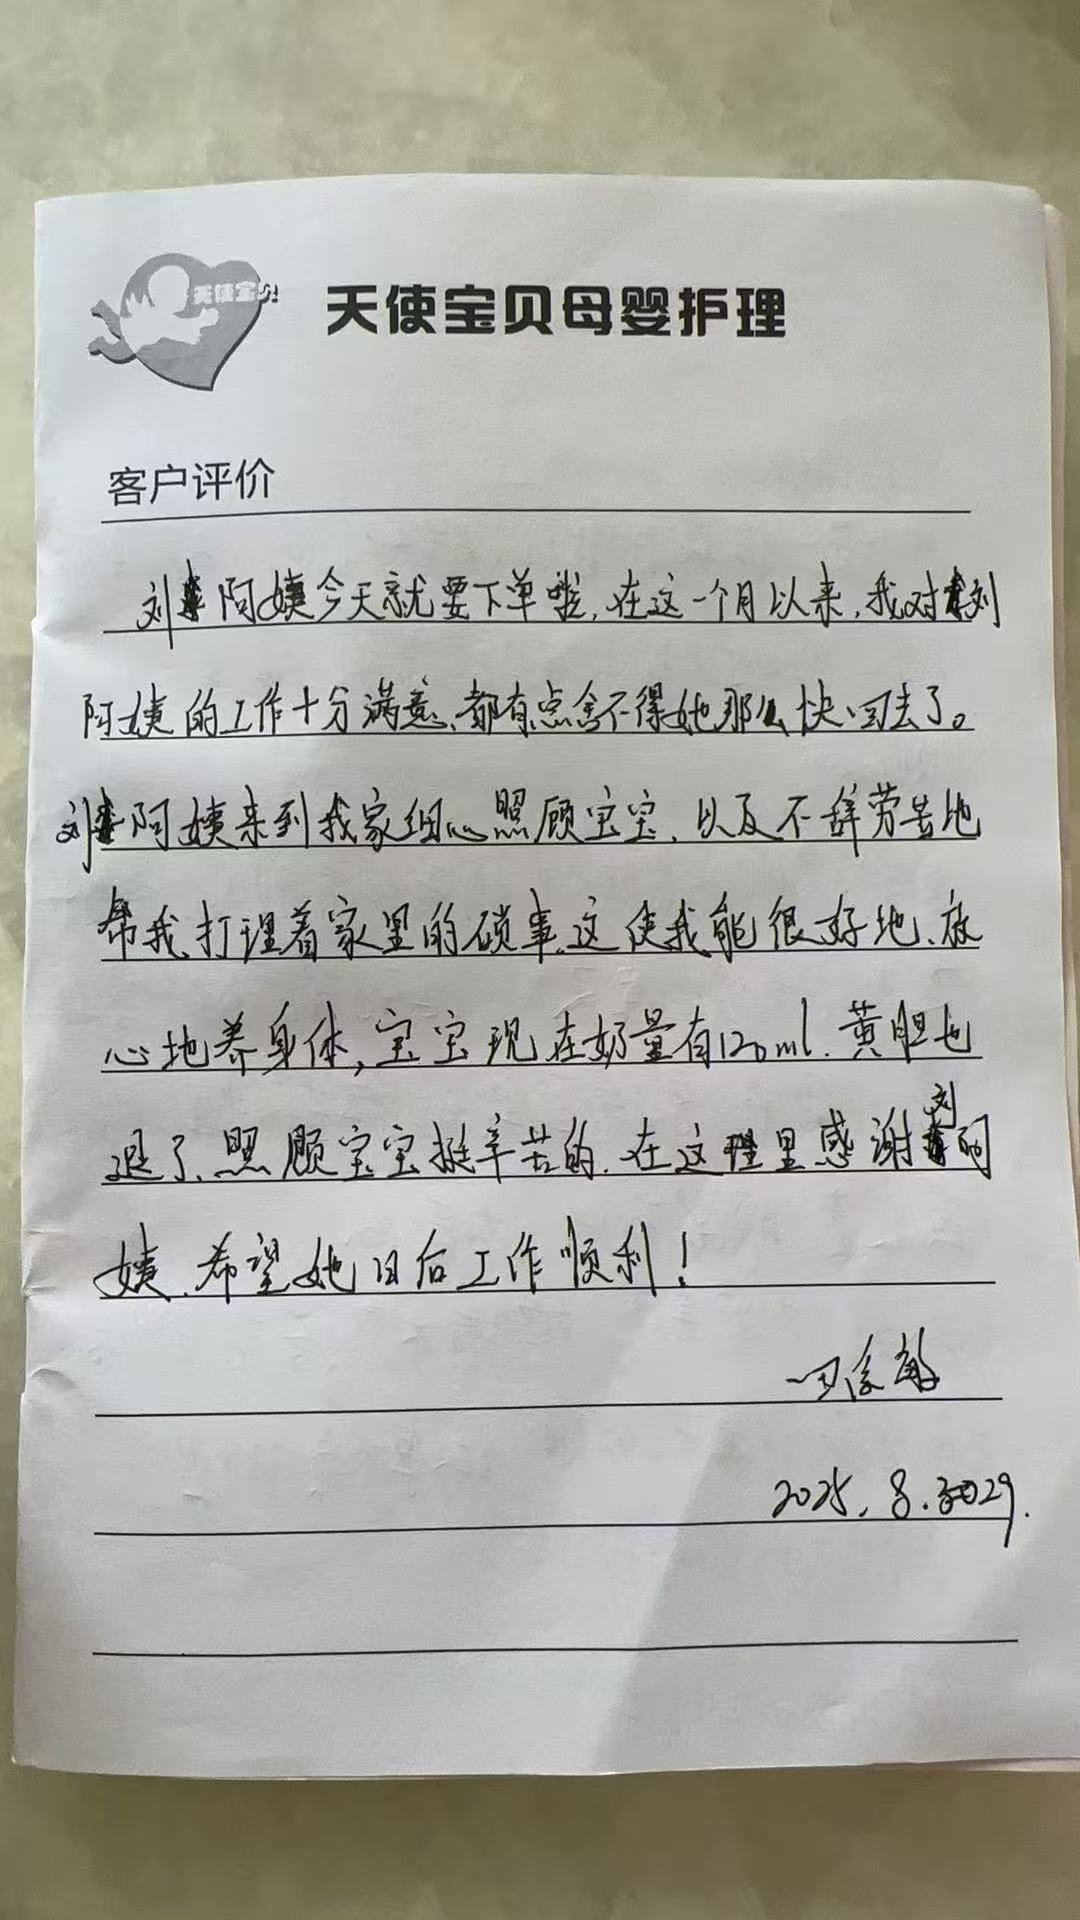 天使宝贝
天使宝贝母婴护理
客户评价
刘阿姨今天就要下单啦,在这一个月以来,我对刘
阿姨的工作十分满意、都有点舍不得她那么快回去了。
刘阿姨来到我家细心照顾宝宝,以及不辞劳苦地
帮我打理着家里的琐事,这使我能很好地、放
心地养身体,宝宝现在奶量有120ml.黄胆也
退了、照顾宝宝挺辛苦的.在这里感谢刘阿
姨.希望她日后工作顺利!
2025.8.29.